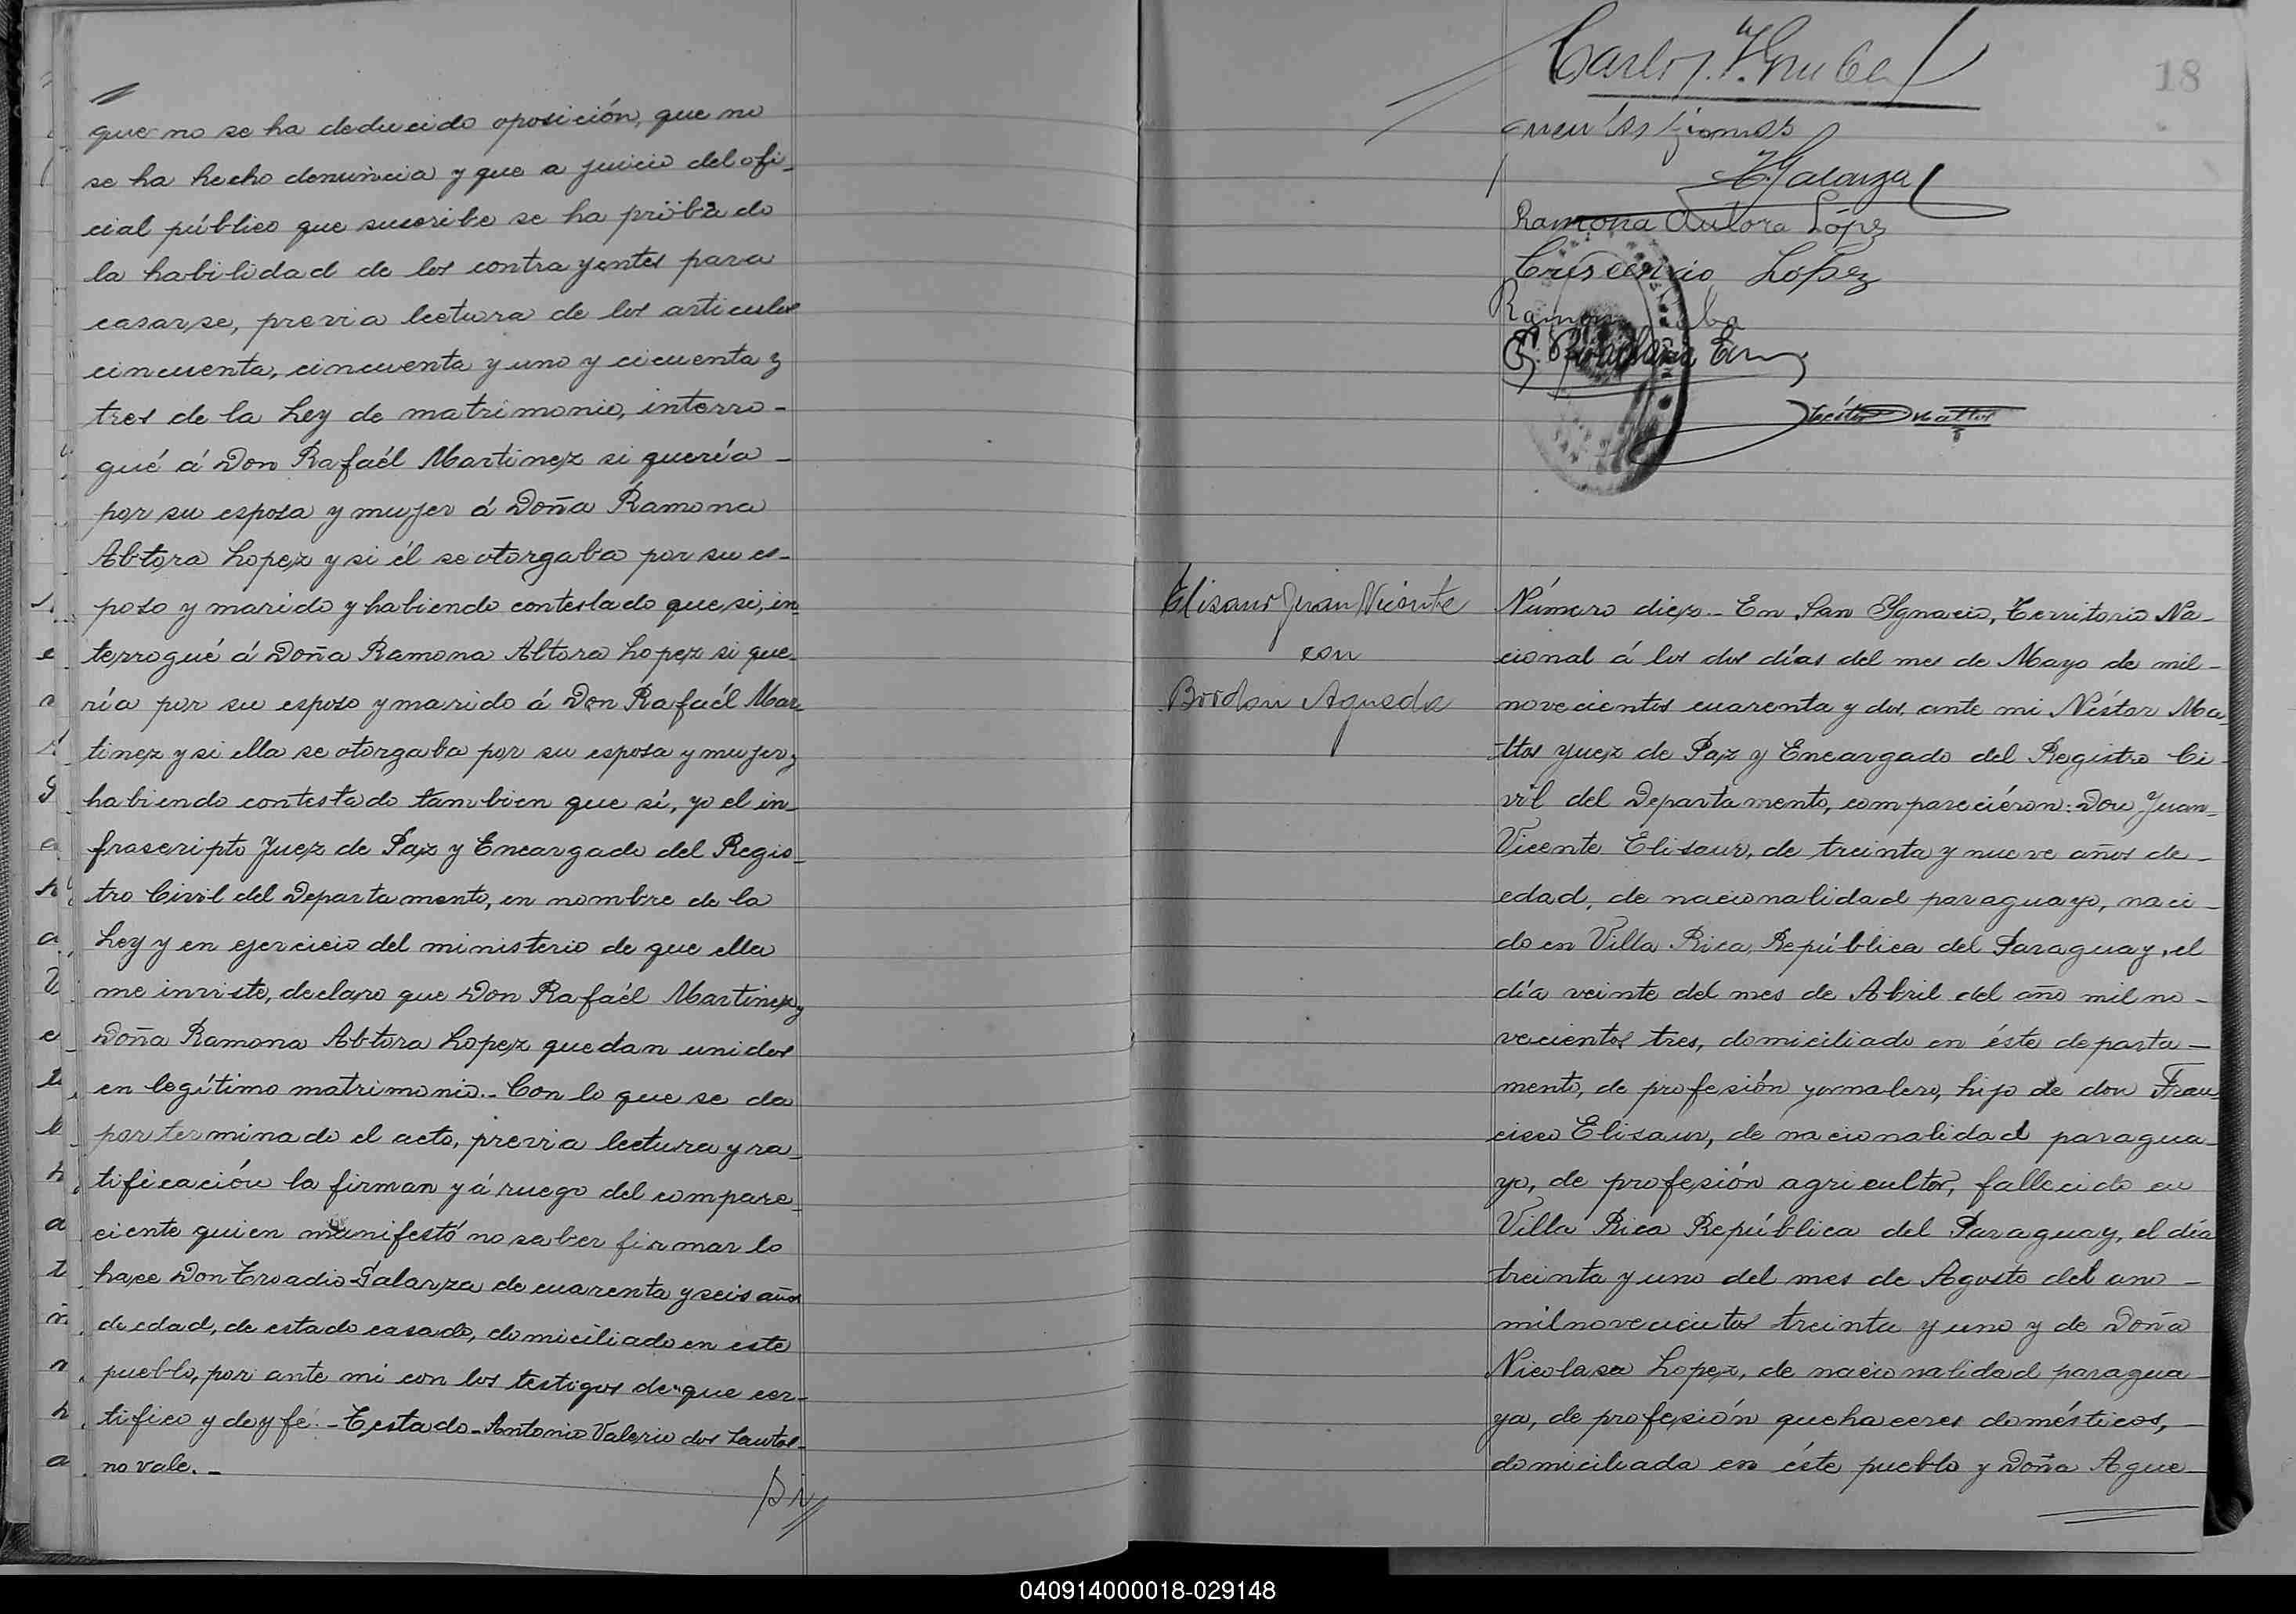 que no se ha deducido oposición, que no
se ha hecho denuncia y que a juicio del ofi-
cial público que suscribe se ha probado
la habilidad de los contrayentes para
casarse, previa lectura de los articulos
cincuenta, cincuenta y uno y cicuenta y
tres de la Ley de matrimonio, interro-
gué á Don Rafaél Martinez si quería -
por su esposa y mujer á Doña Ramona
Abtora Lopez y si él se otorgaba por su es-
poso y marido y habiendo contestado que si, in
terrogué á Doña Ramona Altora Lopez si que-
ría por su esposo y marido á Don Rafaél Mar-
tinez y si ella se otorgaba por su esposa y mujer y
habiendo contestado tambien que sí, yo el in-
frascripto Juez de Paz y Encargado del Regis-
tro Civil del Departamento, en nombre de la
Ley y en ejercicio del ministerio de que ella
me inviste, declaro que Don Rafaél Martinez y
Doña Ramona Abtora Lopez quedan unidos
en legítimo matrimonio.- Con lo que se da
por terminado el acto, previa lectura y ra-
tificación la firman y á ruego del compare-
ciente quien manifestó no saber firmar lo
hace Don Troadio Galarza de cuarenta y seis años
de edad, de estado casado, domiciliado en éste
pueblo, por ante mi con los testigos de que cer-
tifico y doy fé.- Testado - Antonio Valerio dos Santos -
no vale.-
18
Galarza
Ramona Autora López
Crisencio Lopez
Ramon
Néstor Mattos
Elisaur Juan Vicente
con
Bordon Agueda
Número diez.- En San Ygnacio, Territorio Na-
cional á los dos días del mes de Mayo de mil-
novecientos cuarenta y dos, ante mi Néstor Ma-
ttos Juez de Paz y Encargado del Registro Ci-
vil del Departamento, compareciéron: Don Juan-
Vicente Elisaur, de treinta y nueve años de-
edad, de nacionalidad paraguayo, naci-
do en Villa Rica, República del Paraguay, el
día veinte del mes de Abril del año mil no-
vecientos tres, domiciliado en éste departa-
mento, de profesión jornalero, hijo de don Fran
cisco Elisaur, de nacionalidad paragua-
yo, de profesión agricultor, fallecido en
Villa Rica República del Paraguay, el día
treinta y uno del mes de Agosto del ano -
mil novecientos treinta y uno y de Doña
Nicolasa Lopez, de nacionalidad paragua-
ya, de profesión quehaceres domésticos, -
domiciliada en éste pueblo y Doña Ague-
040914000018-029148